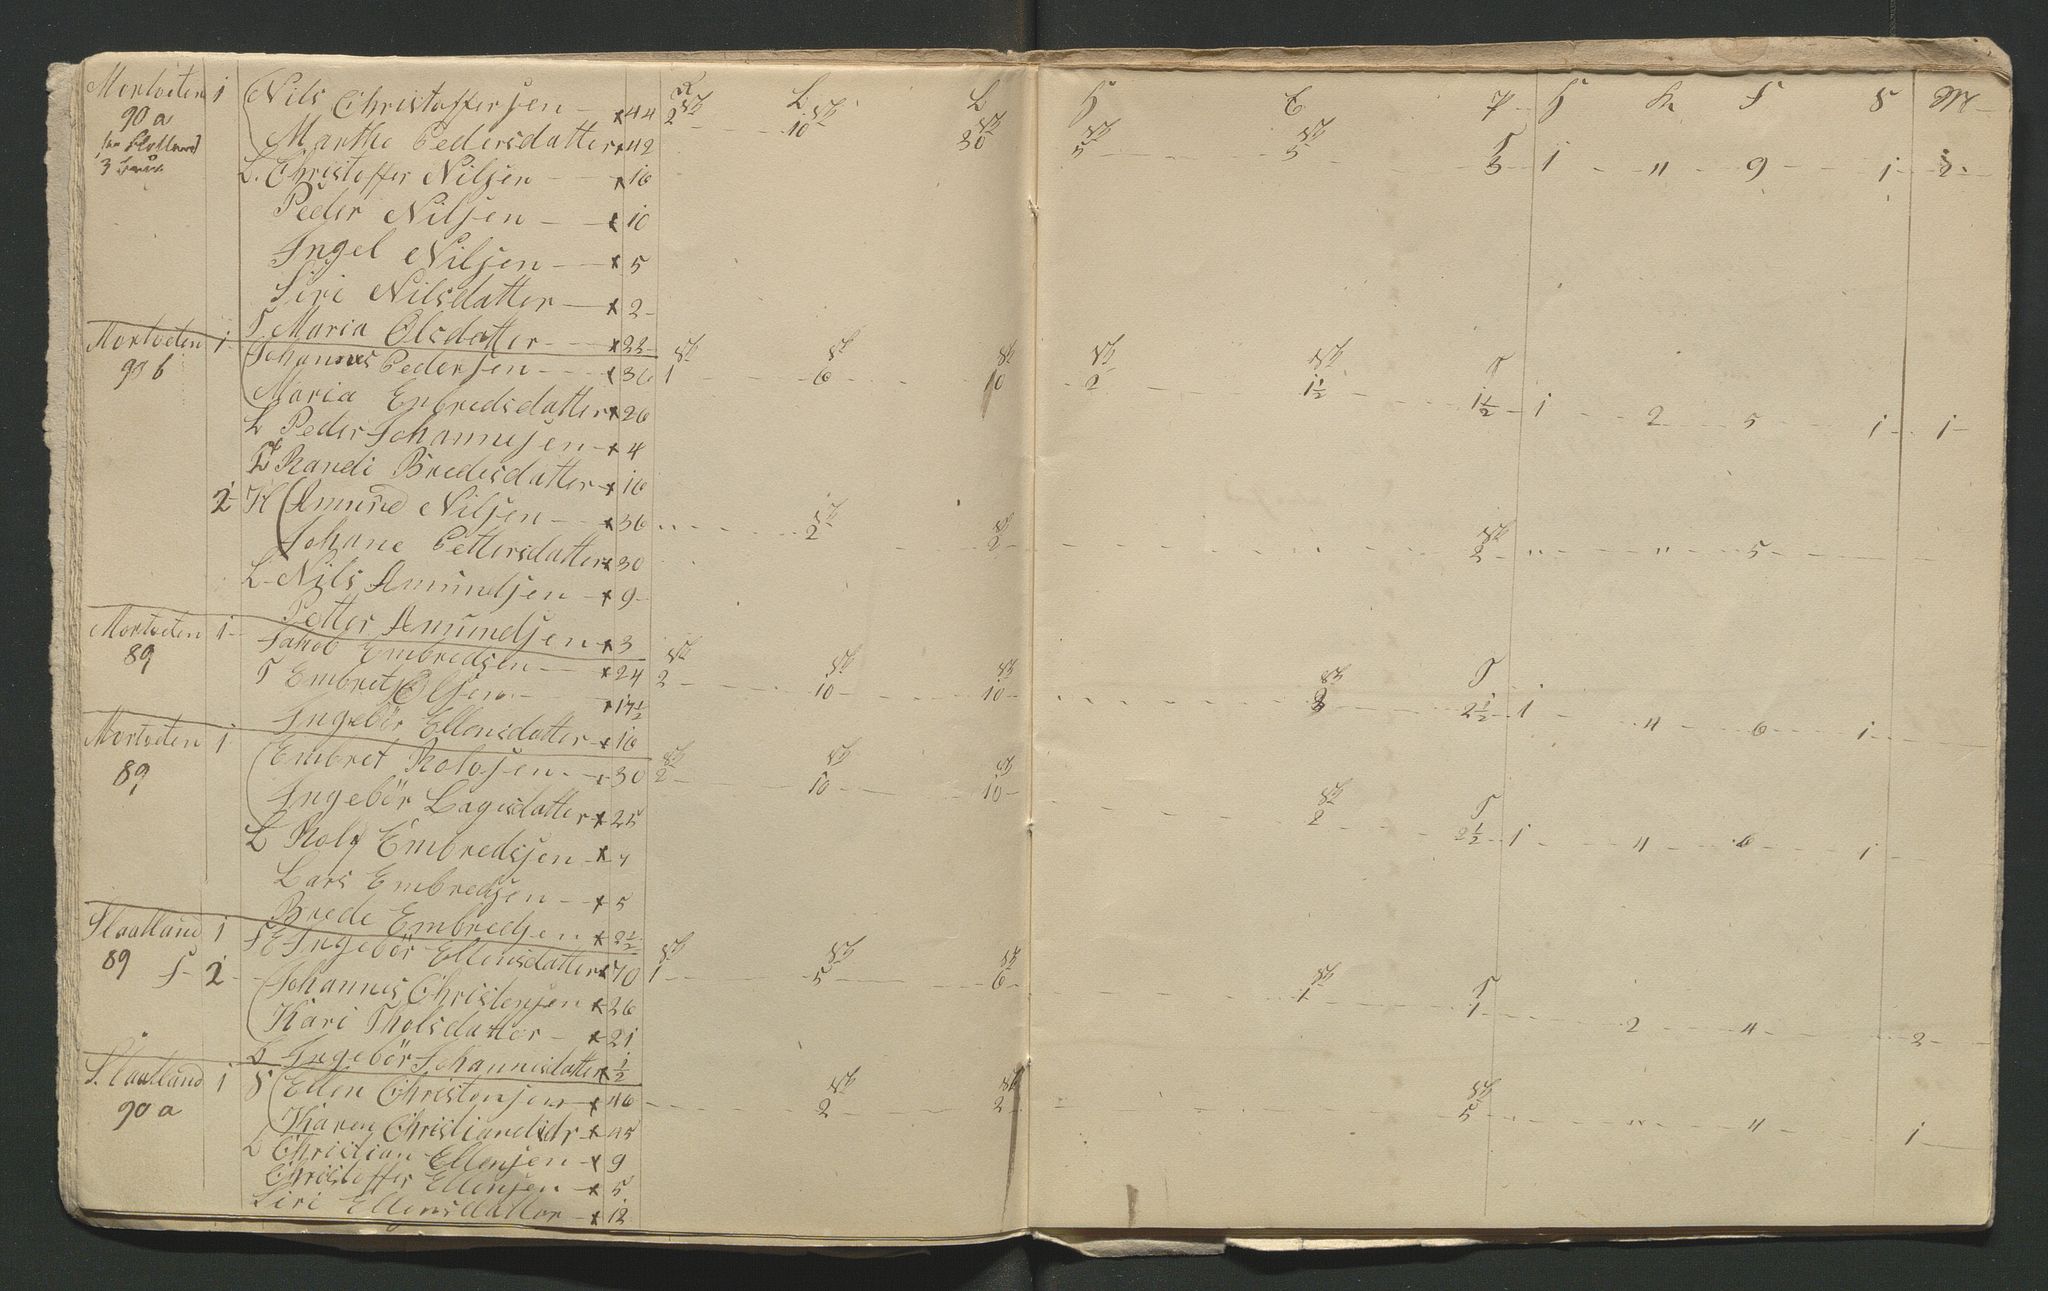 R L L H E P H K F S M
Mortveten 1 Nils Christoffersen - x 44 2 10 30 5 5 3 1 " 9 1 2
90 a Marthe Pedersdatter x 42
3 L. Christoffer Nilsen - x 16
Peder Nilsen - x 10
Ingel Nilsen - x 5
Siri Nilsdatter - x 2
T Maria Olsdatter - x 22
Mortveten 1 Johannes Pedersen - x 36 1 6 10 2 1½ 1½ 1 2 5 1 1
90 b Maria Enbredsdatter x 26
L Peder Johannesen - x 4
Randi Bredesdatter - x 16
2 H Amund Nilsen - x 36 " 2 2 2 " " 5
Johane Pettersdatter x 30
L - Nils Amundsen - x 9
Petter Amundsen x 3
Mortveten 1 Jakob Embredsen - x 24 2 10 10 2 2½ 1 4 6 1
89 T Embret Olsen - x 17½
Ingebör Ellensdatter x 16
Mortveten 1 Embret Rolvsen - x 30 2 10 10 2 2½ 1 4 6 1
89 Ingebör Lagesdatter x 25
L Rolf Embredsen - x 7
Lars Embredsen - x 5
Brede Embredsen x 2½
Slaatland 1 Ingebör Ellensdatter x 70 1 5 6 1 1 2 4 2
89 2 Johannes Christensen x 26
Kari Tholsdatter - x 21
L Ingebör Johannesdatter x ½
Slaatland 1 Ellen Christensen x 46 2 2 5 " 4 1
90 a Karen Christiandsdr x 45
L Christian Ellensen - x 9
Christoffer Ellensen - x 5
Siri Ellensdatter - x 12